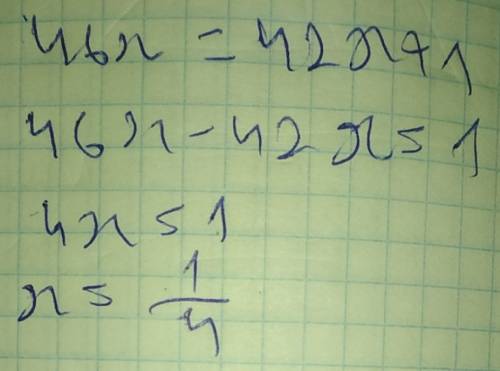 46x = 42x+1
46x-42x=1
4x=1
x= 1/4